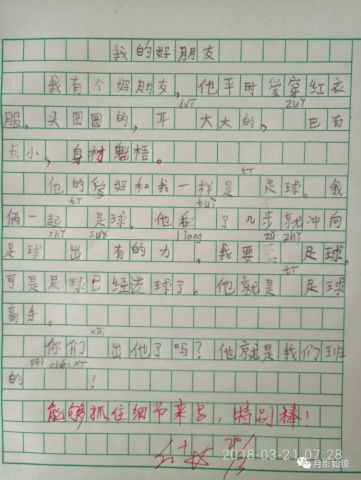 我的好朋友
我有个好朋友，他平时爱穿红衣
服，头圆圆的，耳 大大的， 巴有
点小，身材魁梧。
tī
他的爱好和我一样是 足球。我
tī
俩一起 足球，他 了几步就冲向
足球 出 有的力 。我要 足球，
tī
可是足球已经进球了。他就是 足球
高手。
你们 出他了吗？他就是我们班
的 ！
能够抓住细节来写，特别棒！
2018-03-21 07:28
月影如镜